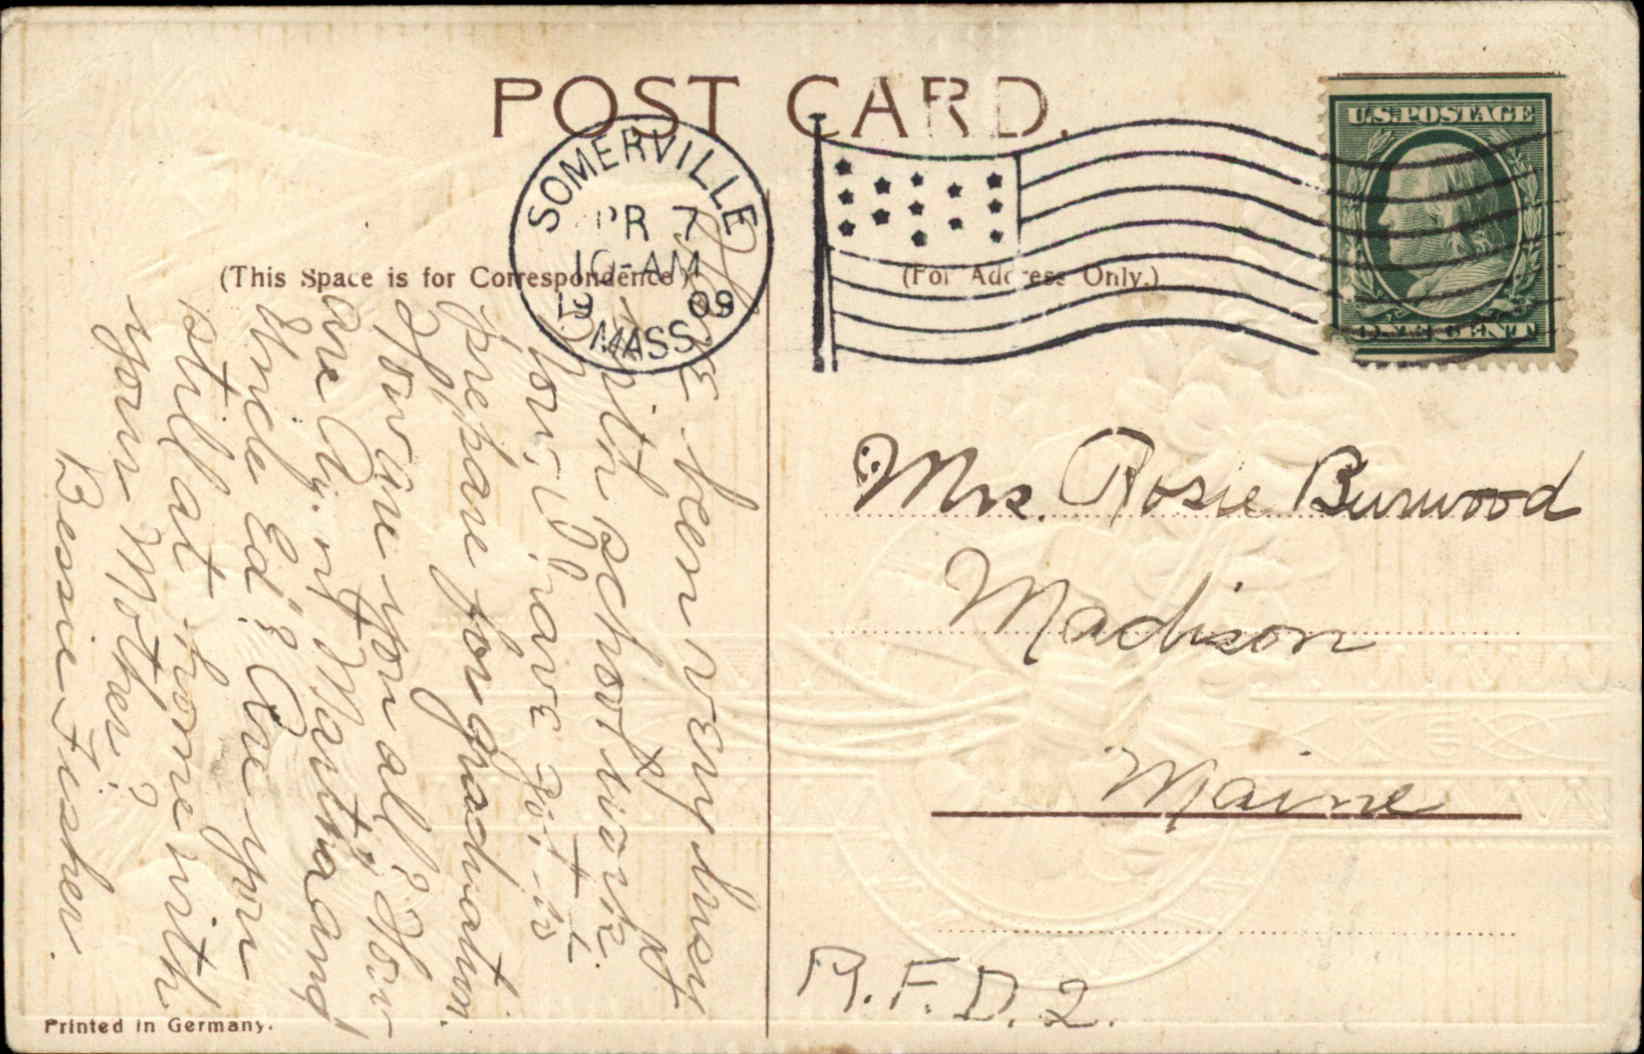 POST CARD.
SOMERVILLE
PR 7
10-AM
19 09
MASS
U.S.POSTAGE
ONE CENT
(This Space is for Correspondence)
(For Address Only.)
Have been very busy
with school work.
now. have to
prepare for graduation.
How are you all? How
are Aj. nt Martha and
Uncle Ed? Are you
still at home with
your Mother?
Bessie Fisher.
Mrs. Rosie Burwood
Madison
Maine
R.F.D. 2.
Printed in Germany.